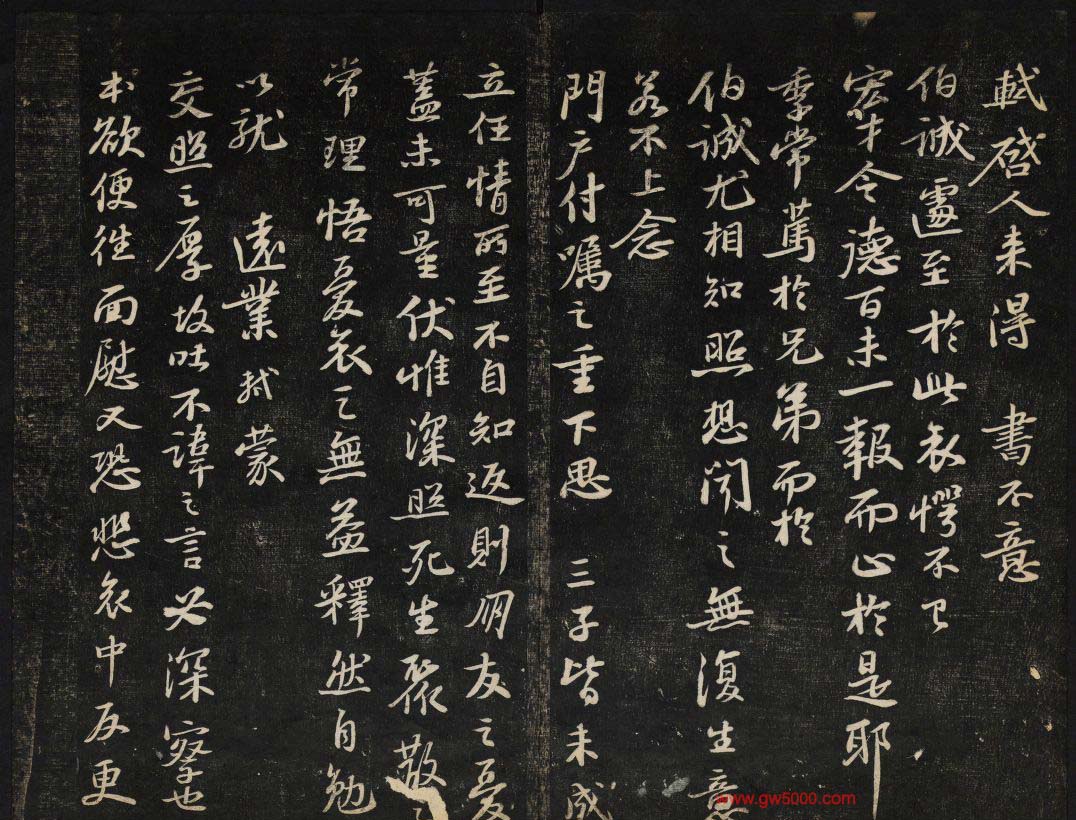 軾啓人来得 書不意
伯誠遽至於此哀愕不已
宏才令德百未一報而止於是耶
季常篤於兄弟而於
伯誠尤相知照想聞之無復生意
若不上念
門户付囑之重下思 三子皆未成
立任情所至不自知返則朋友之憂
蓋未可量伏惟深照死生聚散之
常理悟憂哀之無益釋然自勉
以就 遠業軾蒙
交照之厚故吐不諱之言必深察也
本欲便往面慰又恐悲哀中反更
www.gw5000.com